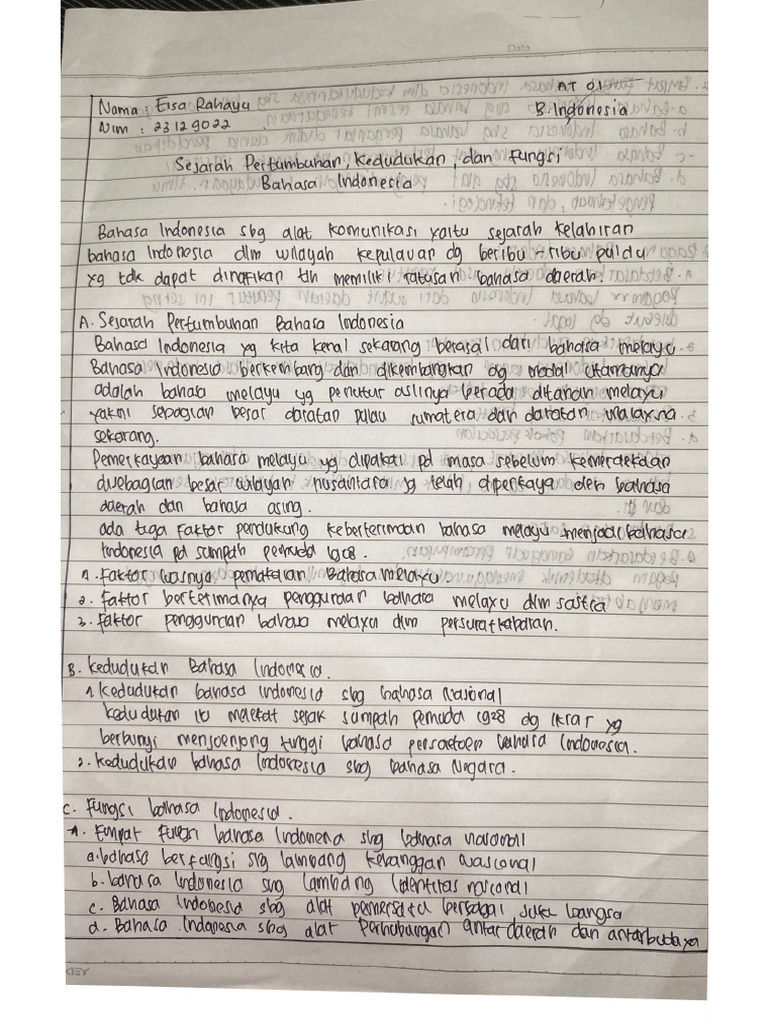 Date
AT 01
Nama : Elsa Rahayu
B. Indonesia
Nim : 23129022
Sejarah Pertumbuhan, Kedudukan, dan Fungsi
Bahasa Indonesia
Bahasa Indonesia sbg alat komunikasi yaitu sejarah kelahiran
bahasa Indonesia dlm wilayah kepulauan dg beribu-ribu pulau
yg tdk dapat dinafikan tlh memiliki ratusan bahasa daerah.
A. Sejarah Pertumbuhan Bahasa Indonesia
Bahasa Indonesia yg kita kenal sekarang berasal dari bahasa melayu
Bahasa Indonesia berkembang dan dikembangkan dg modal utamanya
adalah bahasa melayu yg penutur aslinya berada ditanah melayu
yakni sebagian besar daratan pulau sumatera dan daratan malaysia
sekarang.
Pemerkayaan bahasa melayu yg dipakai pd masa sebelum kemerdekaan
disebagian besar wilayah nusantara yg telah diperkaya oleh bahasa
daerah dan bahasa asing.
ada tiga faktor pendukung keberterimaan bahasa melayu menjadi bahasa
Indonesia pd sumpah pemuda 1928.
1. Faktor luasnya pemakaian Bahasa melayu
2. Faktor berterimanya penggunaan bahasa melayu dlm sastra
3. Faktor penggunaan bahasa melayu dlm persuratkabaran.
B. Kedudukan Bahasa Indonesia.
1. Kedudukan bahasa Indonesia sbg bahasa Nasional
Kedudukan ini melekat sejak sumpah pemuda 1928 dg ikrar yg
berbunyi menjoenjong tinggi bahasa persatoen bahasa Indonesia.
2. Kedudukan bahasa Indonesia sbg bahasa Negara.
C. Fungsi bahasa Indonesia.
1. Empat fungsi bahasa Indonesia sbg bahasa nasional
a. bahasa berfungsi sbg lambang kebanggan Nasional
b. bahasa Indonesia sbg lambang identitas nasional
c. Bahasa Indonesia sbg alat pemersatu berbagai suku bangsa
d. Bahasa Indonesia sbg alat Perhubungan antar daerah dan antarbudaya